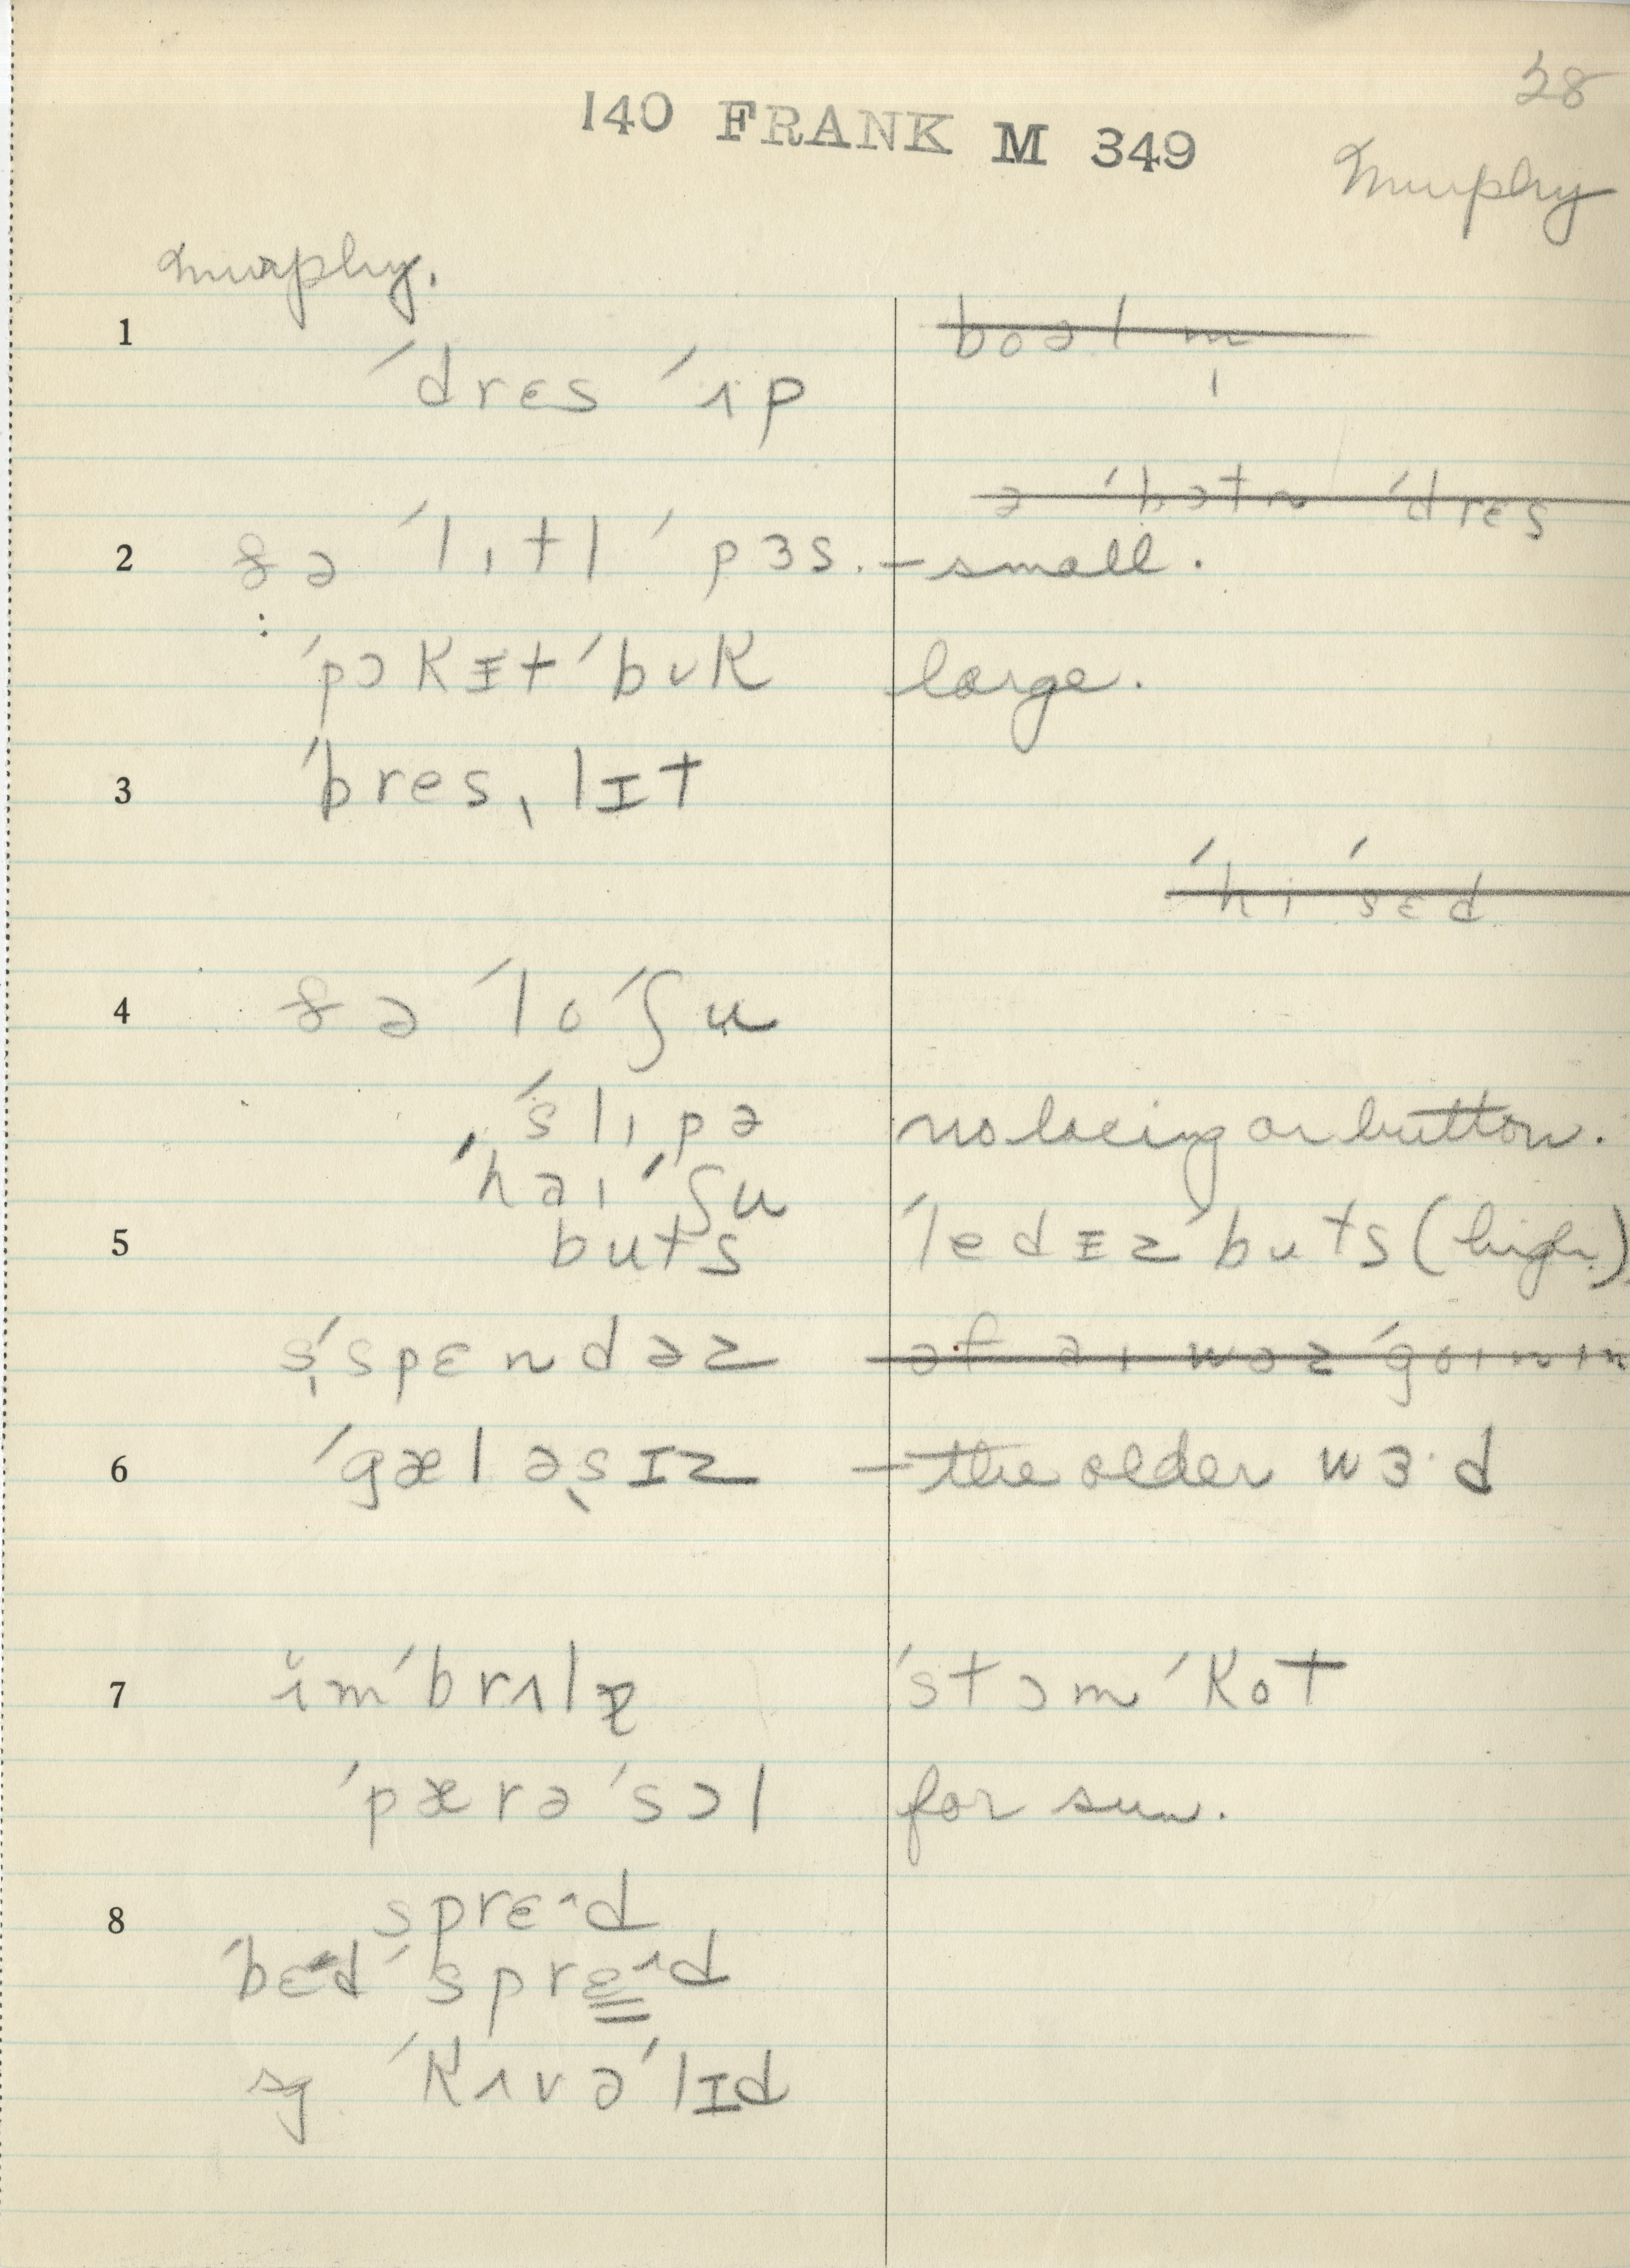 28
140 FRANK M 349
Murphy
Murphy.
1
ˈdrɛs ˈʌp
ə ˈbɔtn ˈdrɛs
2 & ə ˈlɪtl ˈpɜs. – small.
: ˈpɔkɪt ˈbʊk large.
3 ˈbresˌlɪt
ˈhi ˈsɛd
4 & ə ˈlo ˈʃu
ˈslɪpə no lacing or button.
ˈhaɪ ˈʃu
5 buts ˈledɪz ˈbuts (high)
sˈspɛndəz
6 ˈgæləsɪz – the older wɜ·d
7 ĭmˈbrʌlə ˈstɔm ˈkot
ˈpærəˈsɔl for sun.
8 sprɛ^d
ˈbɛd ˈsprɛ^d
sg ˈkʌvəˈlɪd